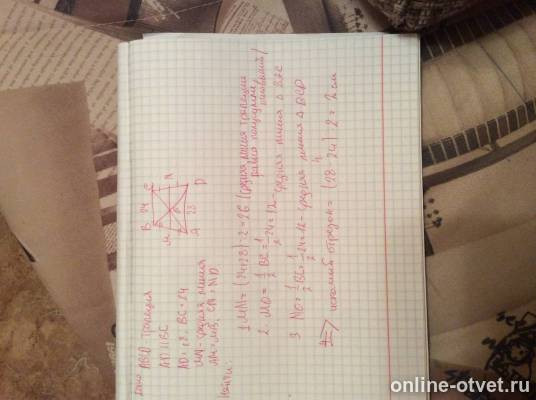 Дано ABCD трапеция
AD || BC
AD = 28 BC = 24
MN - средняя линия
AM = MB; CN = ND
Найти:
B 24 C
M N
A 28 D
1 MN = (24+28) : 2 = 26 (средняя линия трапеции
равна полусумме
оснований)
2 MO = 1/2 BC = 1/2 24 = 12 - средняя линия Δ
3 NO = 1/2 BC = 1/2 24 = 12 - средняя линия Δ BCD
4 => искомый отрезок = (28 - 24) : 2 = 2 см
online-otvet.ru